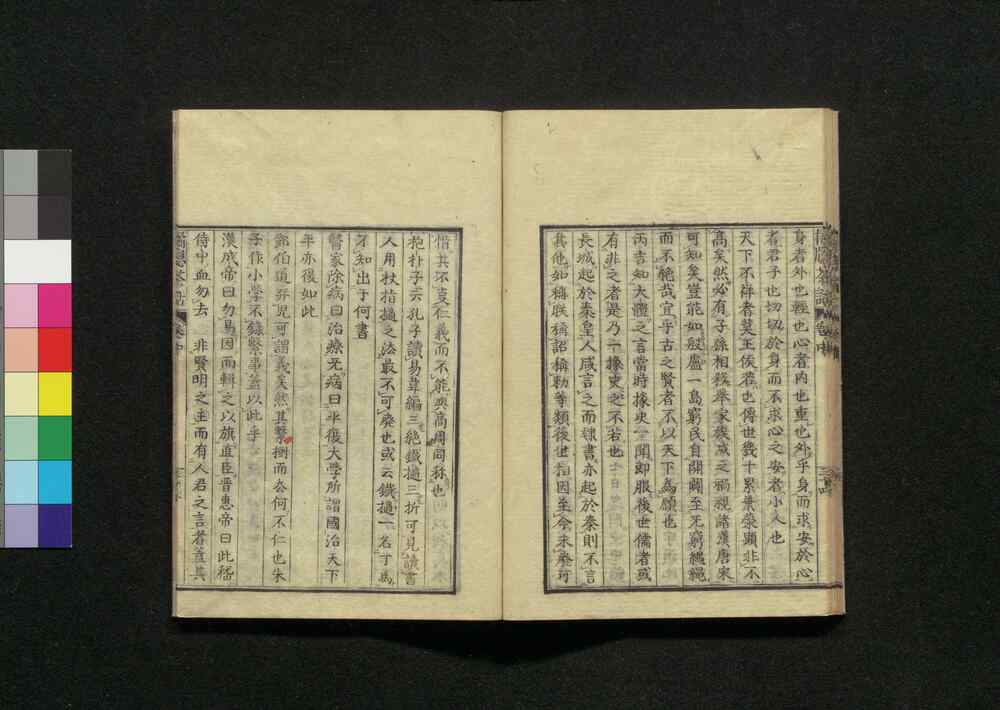 身者外也輕也心者內也重也外乎身而求安於心
者君子也切切於身而不求心之安者小人也
天下不祥者莫王侯若也傳世幾十累葉榮顯非不
高矣然必有子孫相殘舉家殘滅之禍親諸漢唐宋
可知矣豈能如殷盧一島窮民自開闢至无窮繩繩
而不絕哉宜乎古之賢者不以天下為願也
丙吉知大體之言當時掾史一聞即服後世儒者或
有非之者是乃一掾史之不若也
長城起於秦皇人咸言之而隸書亦起於秦則不言
其他如稱朕稱詔稱勅等類後世相因至今未廢可
惜其不變仁義而不能與高周同稱也
抱朴子云孔子讀易韋編三絕鐵撾三折可見讀書
人用杖指撾之法最不可廢也或云鐵撾一名丁馬
不知出于何書
醫家除病曰治療无病曰平復大學所謂國治天下
平亦復如此
鄧伯道弃兒可謂義矣然其繫樹而去何不仁也朱
子作小學不錄繫事蓋以此乎
漢成帝曰勿易因而輯之以旗直臣晉惠帝曰此嵇
侍中血勿去 非賢明之主而有人君之言者蓋其